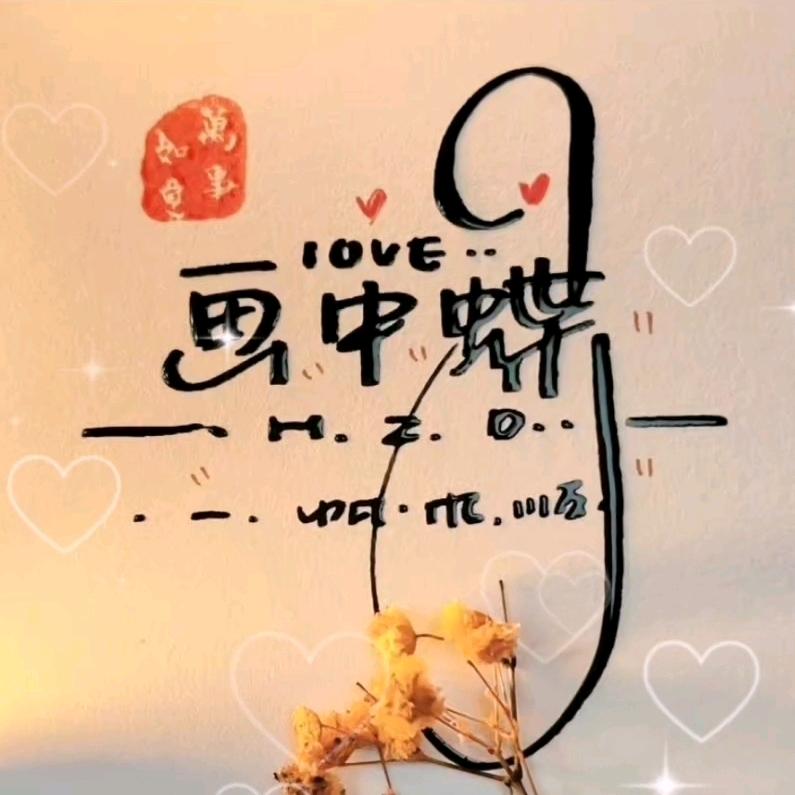 萬事
如意
LOVE..
画中蝶
H. Z. D..
. 一 . 帆 · 风 . 顺